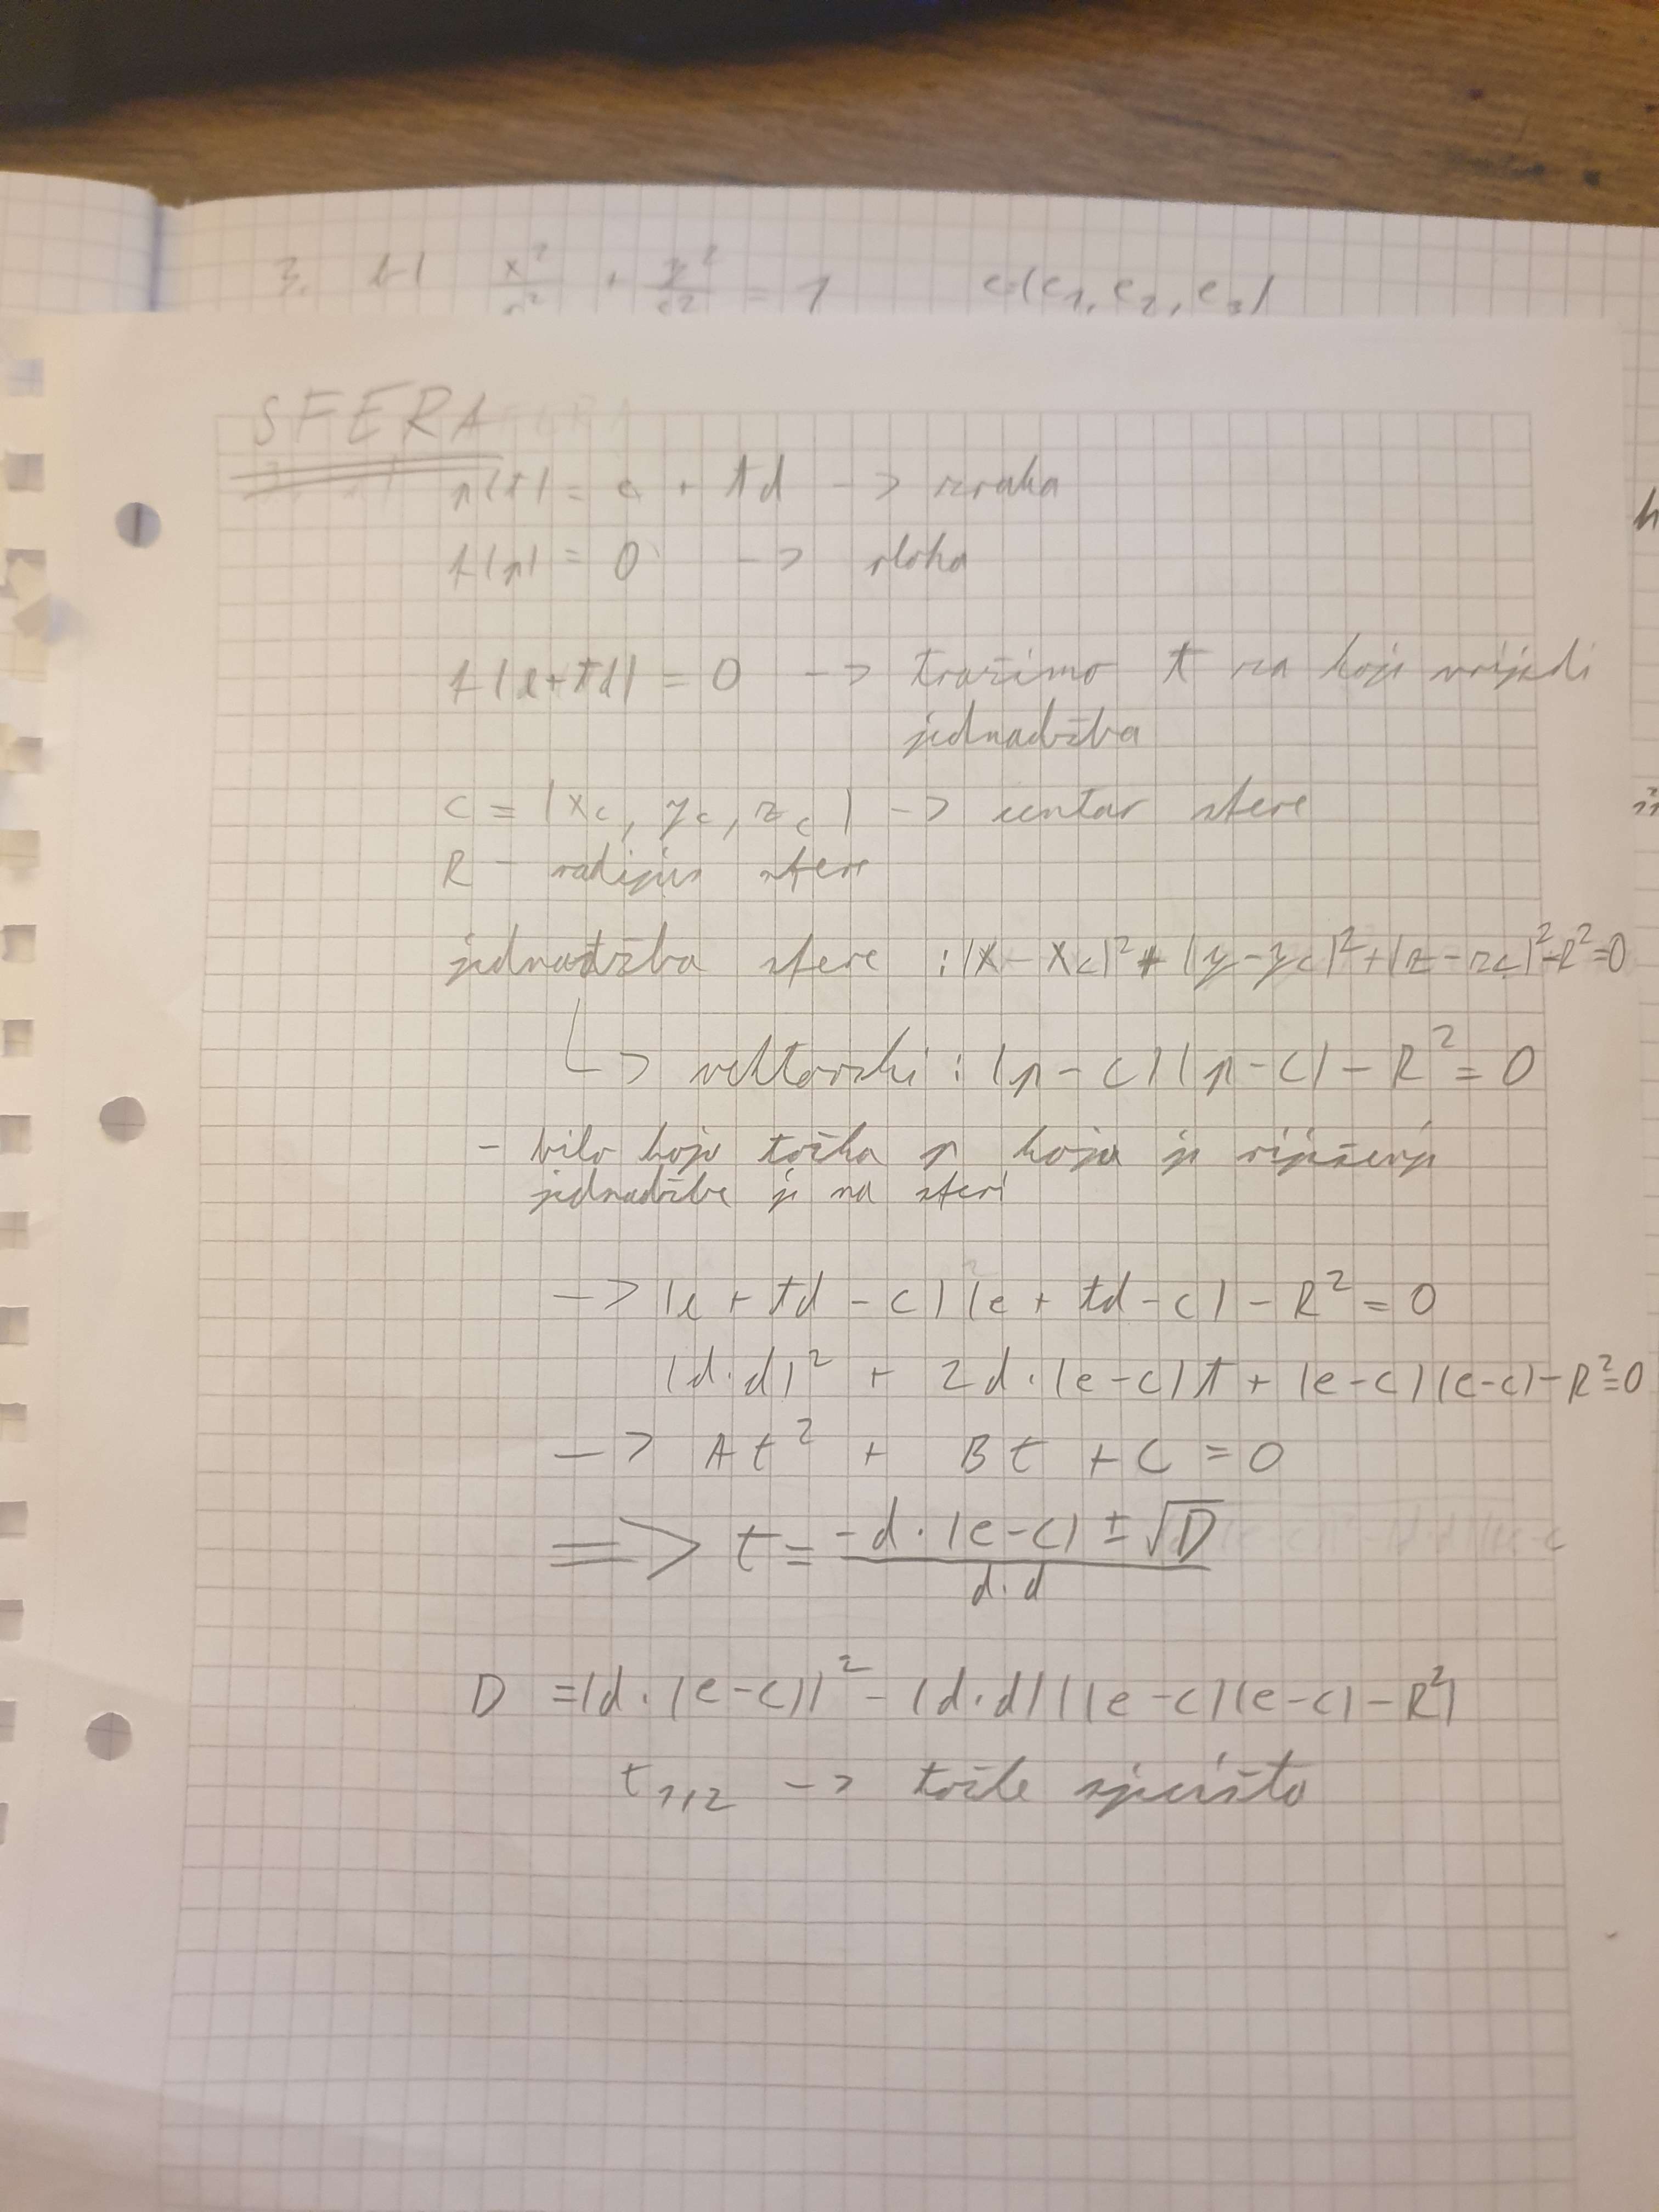 3. b) x²/a² + y²/c² = 1 e=(e₁, e₂, e₃)
SFERA
p(t) = e + td -> zraka
f(p) = 0 -> ploha
f(e+td) = 0 -> tražimo t za koji vrijedi
jednadžba
C = (xc, yc, zc) -> centar sfere
R - radijus sfere
jednadžba sfere : (x - xc)² + (y - yc)² + (z - zc)² - R² = 0
↳ vektorski : (p - c)(p - c) - R² = 0
- bilo koja točka p koja je rješenje
jednadžbe je na sferi
-> (e + td - c)(e + td - c) - R² = 0
(d·d)² + 2d·(e-c)t + (e-c)(e-c) - R² = 0
-> At² + Bt + C = 0
=> t = (-d·(e-c) ± √D) / (d·d)
D = (d·(e-c))² - (d·d)((e-c)(e-c) - R²)
t₁,₂ -> točke sjecišta